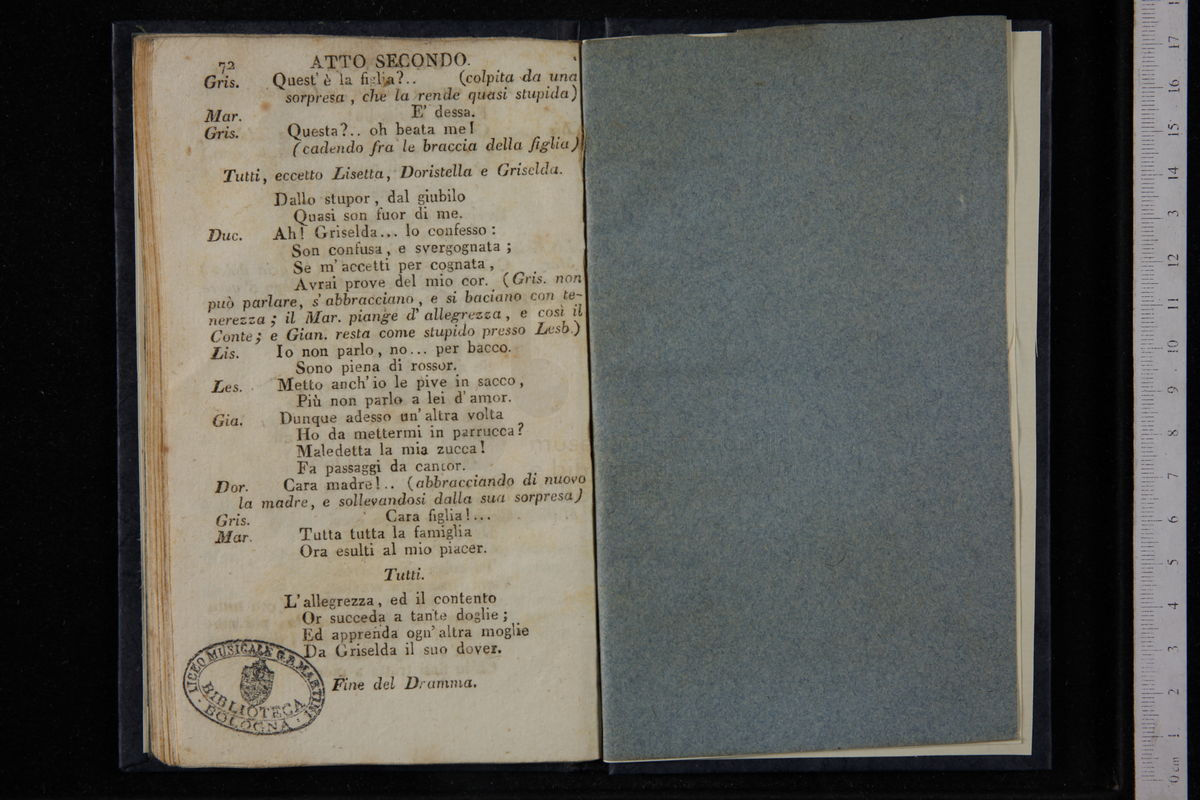 72 ATTO SECONDO.
Gris. Quest' è la figlia?.. (colpita da una
sorpresa, che la rende quasi stupida)
Mar. E' dessa.
Gris. Questa?.. oh beata me!
(cadendo fra le braccia della figlia)
Tutti, eccetto Lisetta, Doristella e Griselda.
Dallo stupor, dal giubilo
Quasi son fuor di me.
Duc. Ah! Griselda... lo confesso:
Son confusa, e svergognata;
Se m'accetti per cognata,
Avrai prove del mio cor. (Gris. non
può parlare, s'abbracciano, e si baciano con te-
nerezza; il Mar. piange d'allegrezza, e così il
Conte; e Gian. resta come stupido presso Lesb.)
Lis. Io non parlo, no... per bacco.
Sono piena di rossor.
Les. Metto anch'io le pive in sacco,
Più non parlo a lei d'amor.
Gia. Dunque adesso un'altra volta
Ho da mettermi in parrucca?
Maledetta la mia zucca!
Fa passaggi da cantor.
Dor. Cara madre!.. (abbracciando di nuovo
la madre, e sollevandosi dalla sua sorpresa)
Gris. Cara figlia!...
Mar. Tutta tutta la famiglia
Ora esulti al mio piacer.
Tutti.
L'allegrezza, ed il contento
Or succeda a tante doglie;
Ed apprenda ogn'altra moglie
Da Griselda il suo dover.
Fine del Dramma.
LICEO MUSICALE G.B. MARTINI
BIBLIOTECA
BOLOGNA
17
16
15
14
3
12
11
10
9
8
7
6
5
4
3
2
1
0 cm